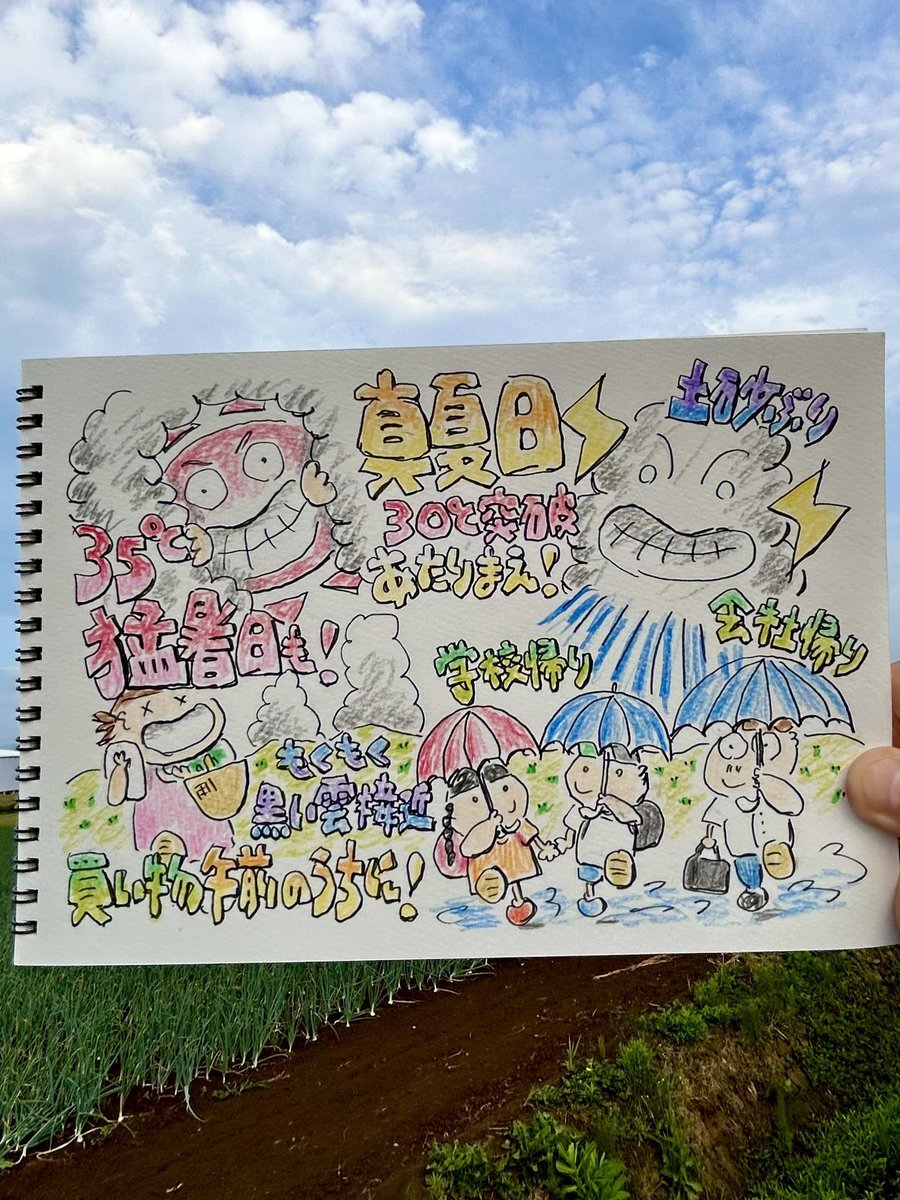 真夏日
30℃突破
あたりまえ!
土砂ぶり
35℃
猛暑日も!
学校帰り
会社帰り
もくもく
黒い雲接近
買い物午前のうちに!